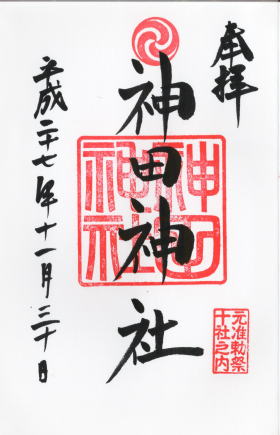 奉拝
神田神社
神田神社
元准勅祭
十社之内
平成二十七年十一月三十日